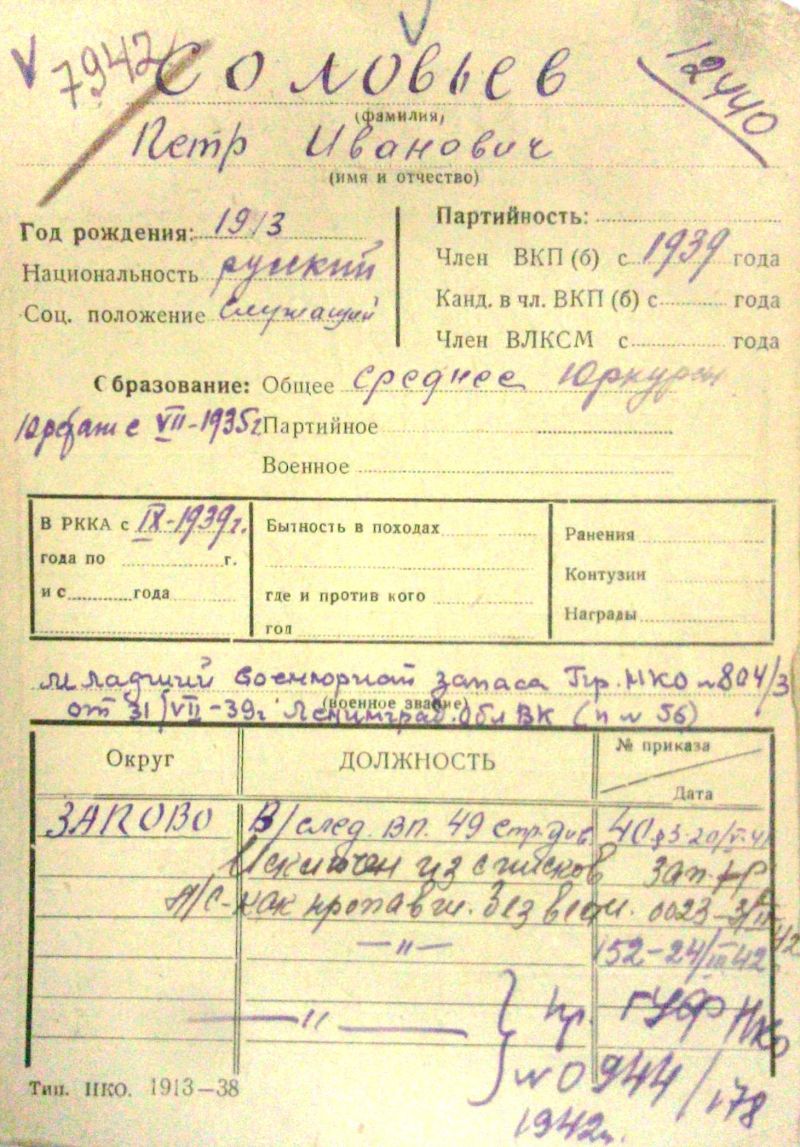 7942
Соловьев
12440
(фамилия)
Петр Иванович
(имя и отчество)
Год рождения: 1913
Национальность русский
Соц. положение служащий
Партийность:
Член ВКП (б) с 1939 года
Канд. в чл. ВКП (б) с года
Член ВЛКСМ с года
Образование: Общее среднее Юркурсы
с VII-1935г Партийное
Военное
В РККА с IX-1939г.
года по г.
и с года
Бытность в походах
где и против кого
год
Ранения
Контузии
Награды
Младший военюрист запаса Пр. НКО №804/3
(военное звание)
от 31/VII-39г Ленинград. Обл ВК (п № 56)
Округ ДОЛЖНОСТЬ № приказа
Дата
ЗАПОВО В/след. ВП. 49 стр. див. 40
Исключен из списков
н/с как пропавш. без вести. 0023
—"— 152-24/III 42
—"— } пр. ГУФ НКО
№0944/178
1942г.
Тип. НКО. 1913—38